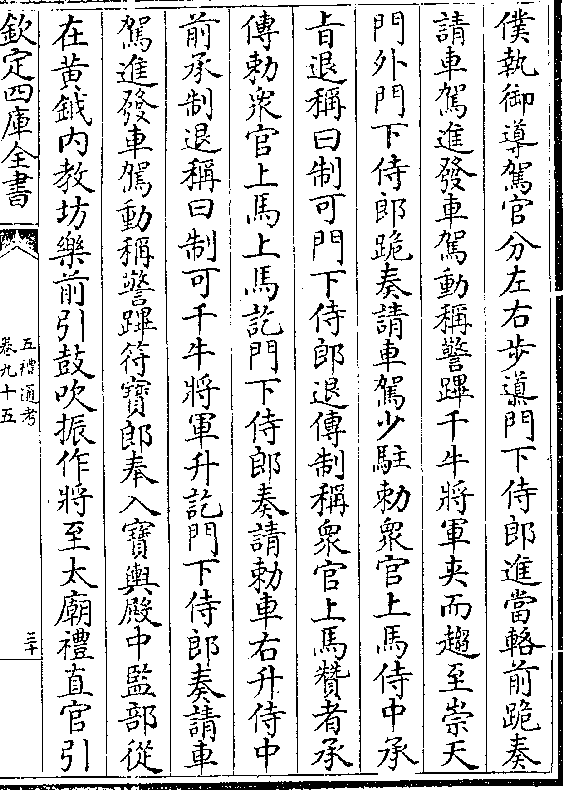 僕執御導駕官分左右步導門下侍郎進當輅前跪奏
請車駕進發車駕動稱警蹕千牛將軍夾而趨至崇天
門外門下侍郎跪奏請車駕少駐勅衆官上馬侍中承
旨退稱曰制可門下侍郎退傳制稱衆官上馬贊者承
傳勅衆官上馬上馬訖門下侍郎奏請勅車右升侍中
前承制退稱曰制可千牛將軍升訖門下侍郎奏請車
駕進發車駕動稱警蹕符寶郎奉八寶輿殿中監部從
在黃鉞内教坊樂前引鼓吹振作將至太廟禮直官引
欽定四庫全書
五禮通考
卷九十五
三十